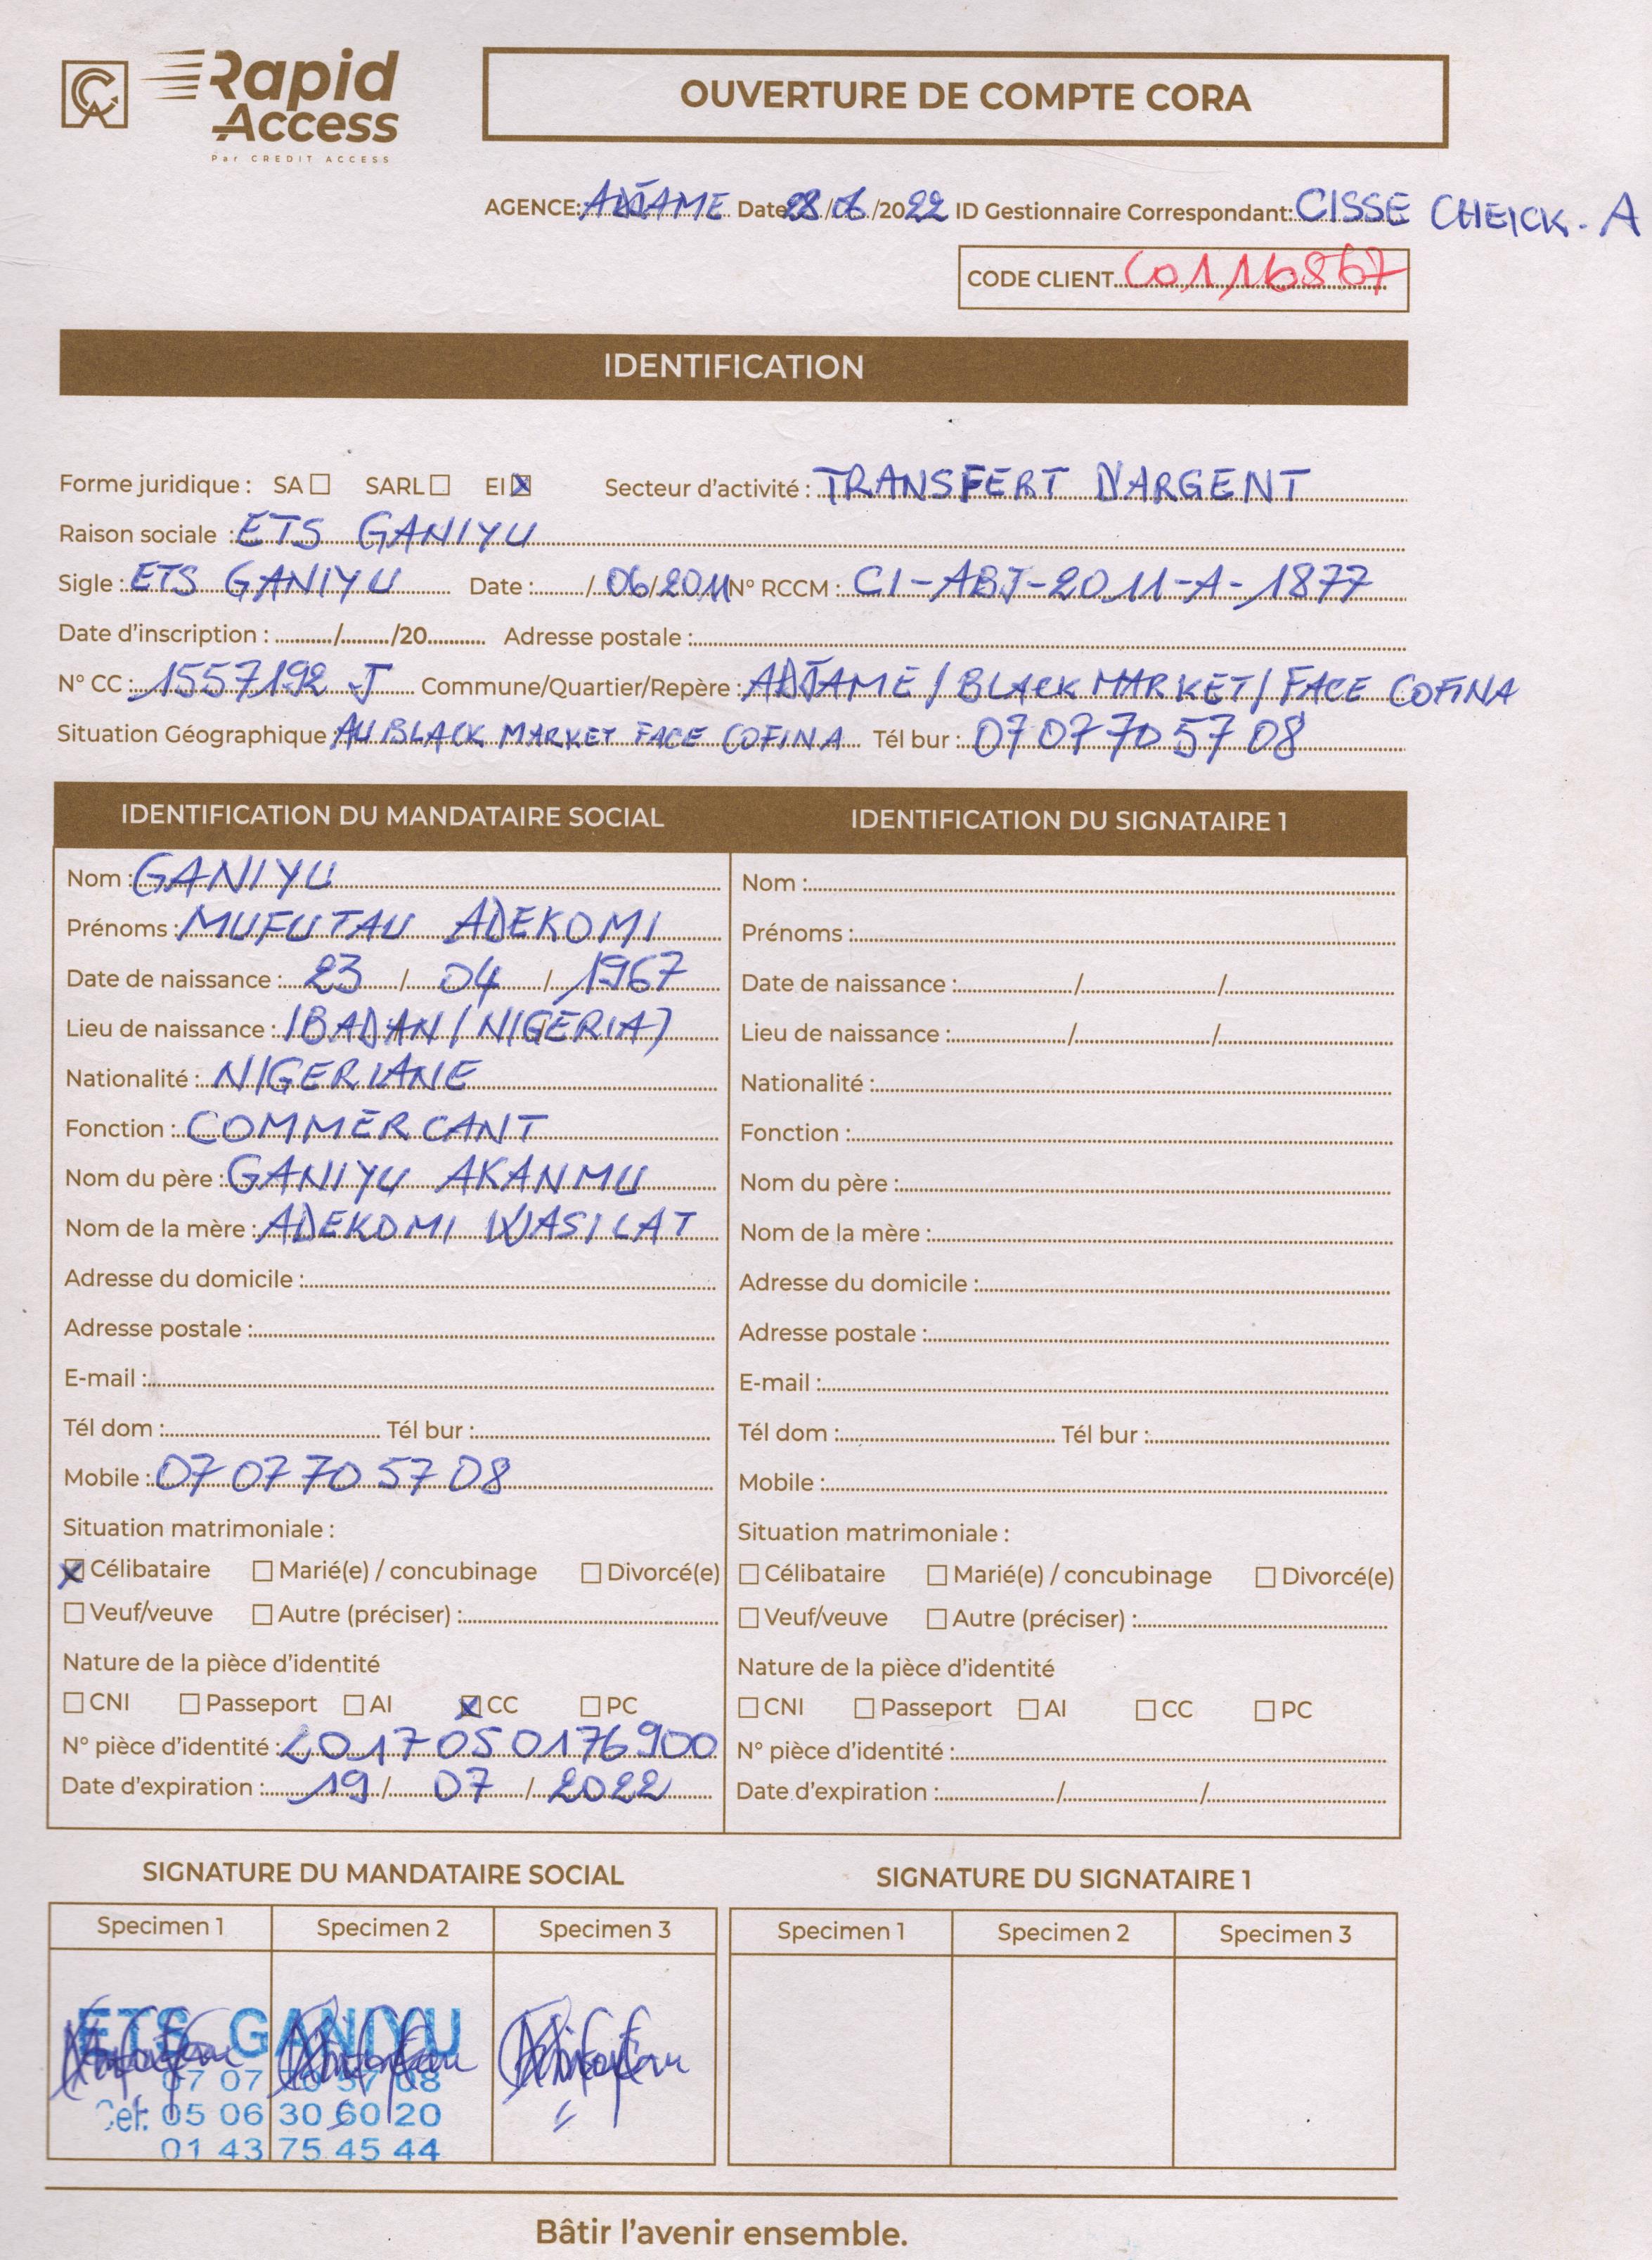 Rapid Access
Par CREDIT ACCESS
OUVERTURE DE COMPTE CORA
AGENCE: ADJAME Date 28/06/2022 ID Gestionnaire Correspondant: CISSE CHEICK. A
CODE CLIENT C0116867
IDENTIFICATION
Forme juridique : SA ☐ SARL ☐ EI ☒ Secteur d'activité : TRANSFERT D'ARGENT
Raison sociale : ETS GANIYU
Sigle : ETS GANIYU Date : ......./06/2011 N° RCCM : CI-ABJ-2011-A-1877
Date d'inscription : ........./........./20........... Adresse postale :
N° CC : 1557192 J Commune/Quartier/Repère : ADJAME / BLACK MARKET / FACE COFINA
Situation Géographique : AU BLACK MARKET FACE COFINA Tél bur : 07 07 70 57 08
IDENTIFICATION DU MANDATAIRE SOCIAL
Nom : GANIYU
Prénoms : MUFUTAU ADEKOMI
Date de naissance : 23 / 04 / 1967
Lieu de naissance : IBADAN (NIGERIA)
Nationalité : NIGERIANE
Fonction : COMMERCANT
Nom du père : GANIYU AKANMU
Nom de la mère : ADEKOMI WASILAT
Adresse du domicile :
Adresse postale :
E-mail :
Tél dom : Tél bur :
Mobile : 07 07 70 57 08
Situation matrimoniale :
☒ Célibataire ☐ Marié(e) / concubinage ☐ Divorcé(e)
☐ Veuf/veuve ☐ Autre (préciser) :
Nature de la pièce d'identité
☐ CNI ☐ Passeport ☐ AI ☒ CC ☐ PC
N° pièce d'identité : C017050176900
Date d'expiration : 19 / 07 / 2022
IDENTIFICATION DU SIGNATAIRE 1
Nom :
Prénoms :
Date de naissance : / /
Lieu de naissance : / /
Nationalité :
Fonction :
Nom du père :
Nom de la mère :
Adresse du domicile :
Adresse postale :
E-mail :
Tél dom : Tél bur :
Mobile :
Situation matrimoniale :
☐ Célibataire ☐ Marié(e) / concubinage ☐ Divorcé(e)
☐ Veuf/veuve ☐ Autre (préciser) :
Nature de la pièce d'identité
☐ CNI ☐ Passeport ☐ AI ☐ CC ☐ PC
N° pièce d'identité :
Date d'expiration : / /
SIGNATURE DU MANDATAIRE SOCIAL
Specimen 1 Specimen 2 Specimen 3
ETS GANIYU
07 07 70 57 08
Cel: 05 06 30 60 20
01 43 75 45 44
SIGNATURE DU SIGNATAIRE 1
Specimen 1 Specimen 2 Specimen 3
Bâtir l'avenir ensemble.